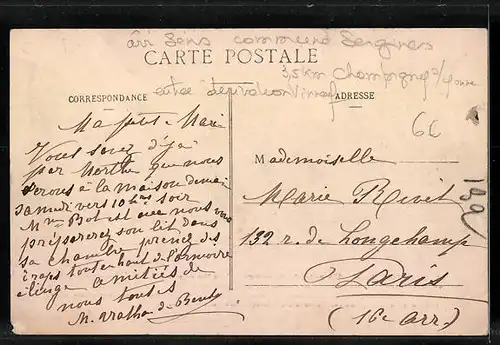 arr Sens commune Sergines
CARTE POSTALE
3,5km Champigny s/Yonne
entre
CORRESPONDANCE
ADRESSE
6E
Ma petite Marie
Vous savez déjà
par Marthe que nous
serons à la maison demain
samedi vers 10 hres soir
Mme Bot est avec nous vous
préparerez son lit dans
sa chambre prenez des
draps tout en haut de l'armoire
à linge amitiés de
nous toutes
M.
Mademoiselle
Marie Rivet
132 r. de Longchamp
Paris
(16e arr)